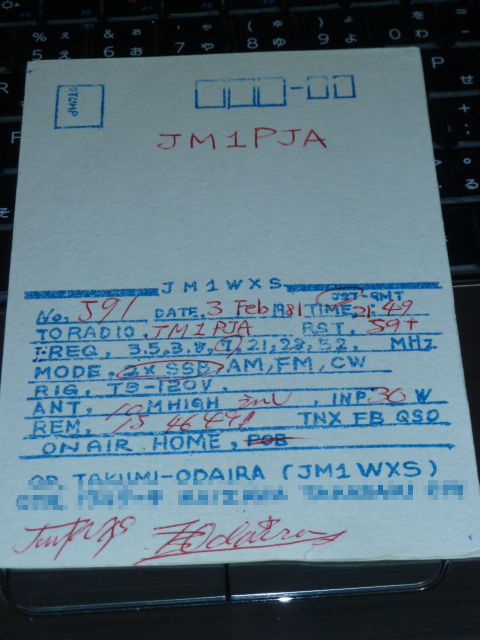 STAMP
JM1PJA
JM1WXS
JST-GMT
No. J91 DATE, 3 Feb 1981 TIME 21:49
TO RADIO, JM1PJA RST, 59+
FREQ, 3.5, 3.8, 7, 21, 28, 52, MHz
MODE, 2X SSB, AM, FM, CW
RIG, TS-120V.
ANT, 10 MHIGH INV, INP 30 W
REM, TNX FB QSO
ON AIR HOME, POB
OP TAKUMI-ODAIRA (JM1WXS)